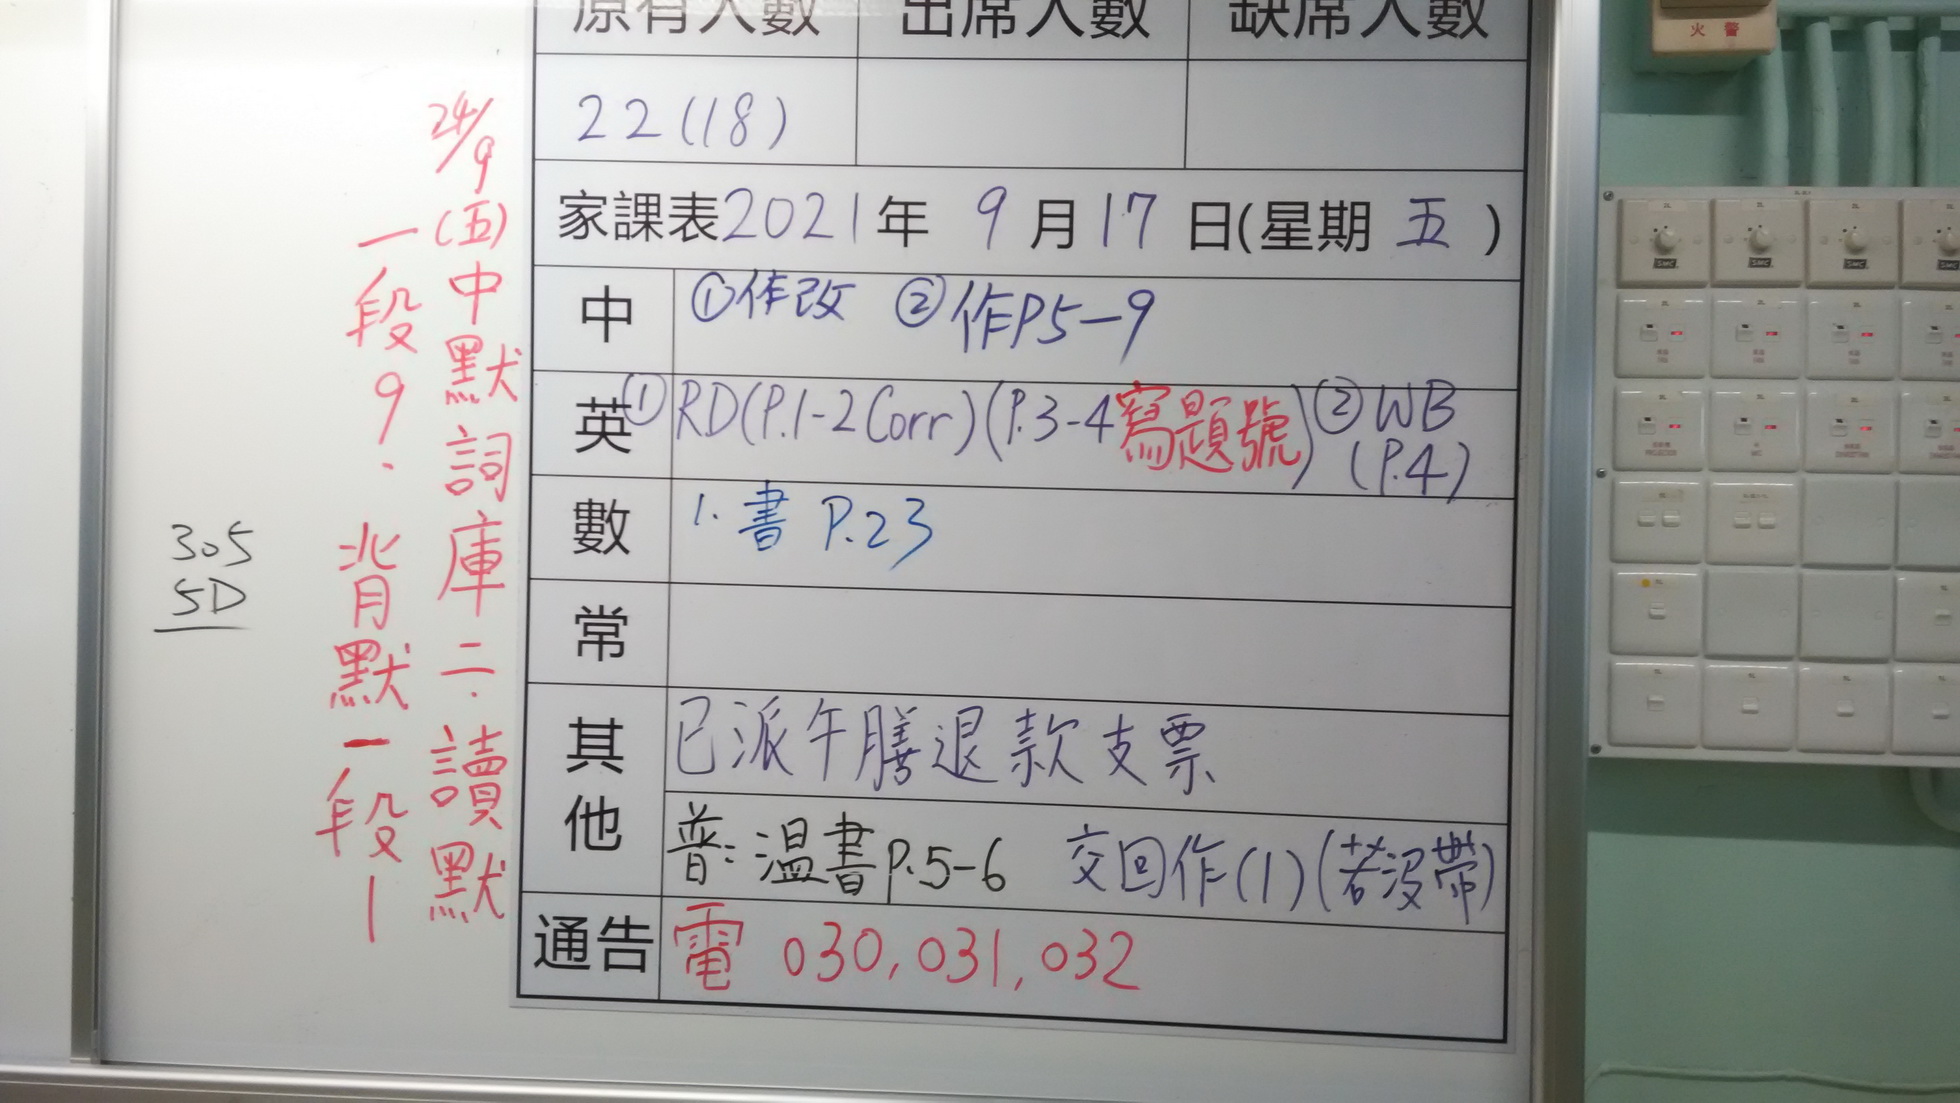 原有人數 出席人數 缺席人數
22(18)
家課表2021年 9月17日(星期五)
中 ①作改 ②作P5-9
英 ①RD(P.1-2Corr)(P.3-4寫題號) ②WB
(P.4)
數 1. 書 P.23
常
其他 已派午膳退款支票
普：溫書P.5-6 交回作(1)(若沒帶)
通告 電 030,031,032
24/9(五)中默詞庫二.讀默
一段9.背默一段1
305
5D
火警